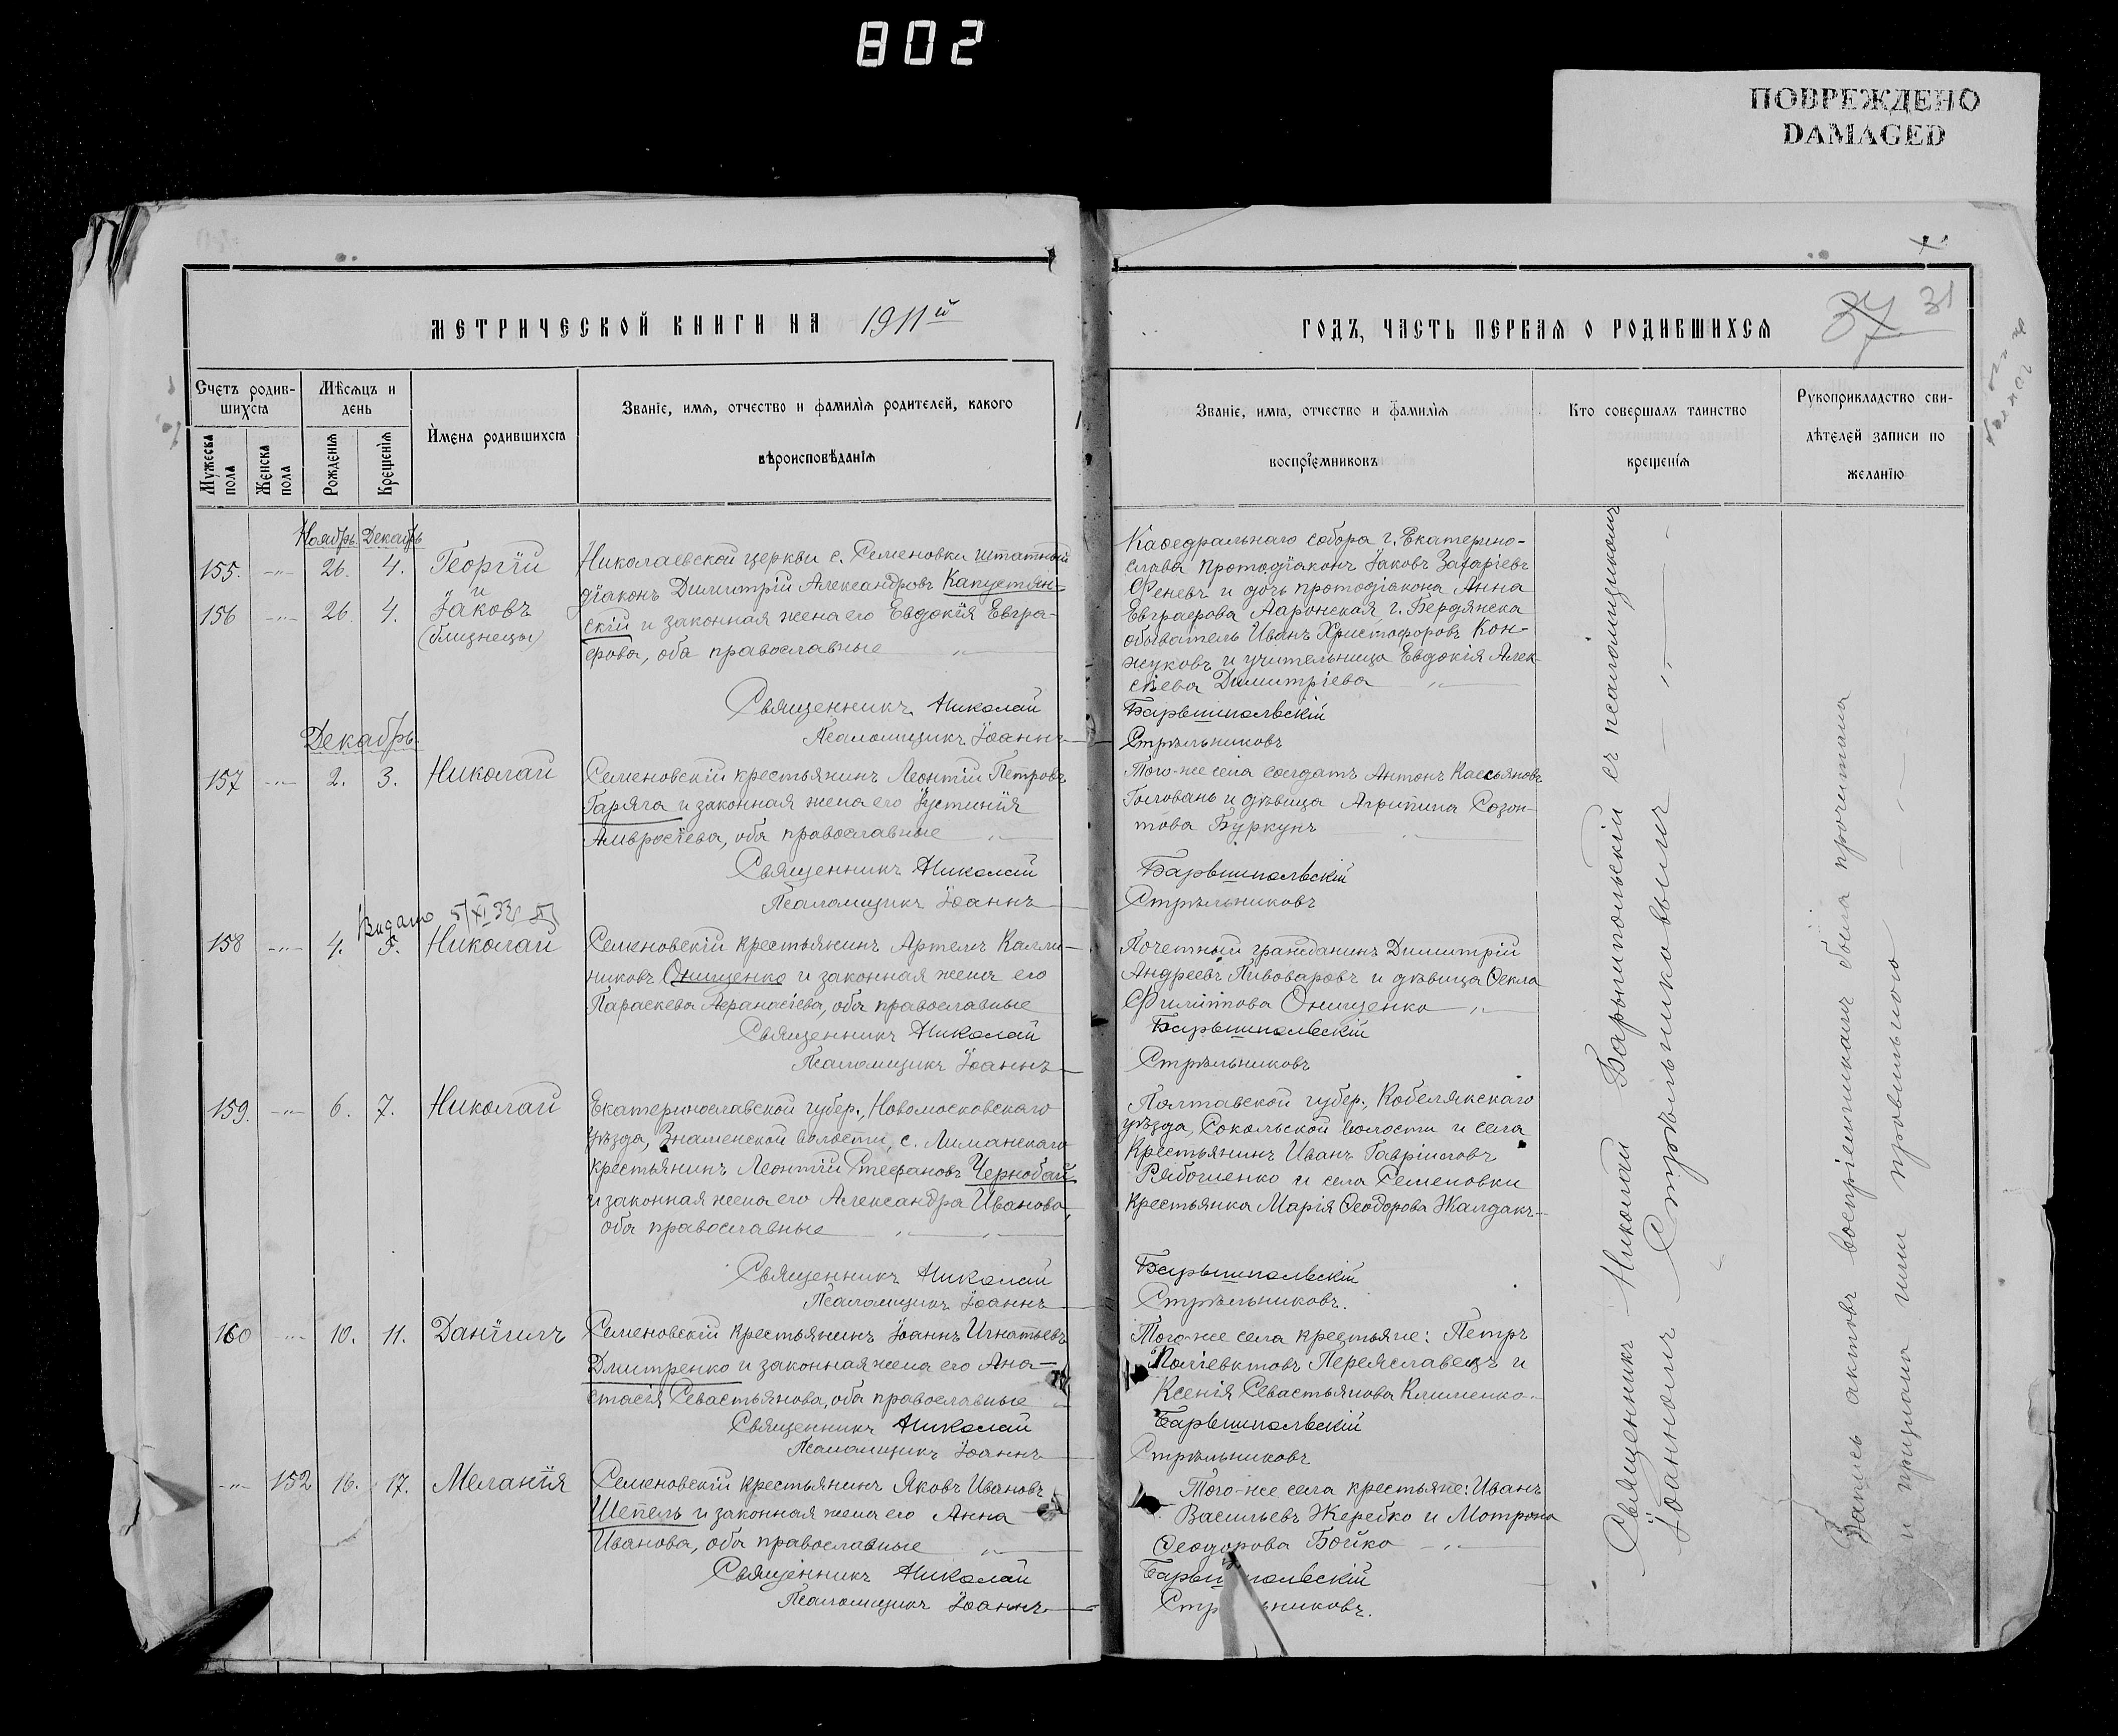 802
ПОВРЕЖДЕНО
DAMAGED
МЕТРИЧЕСКОЙ КНИГИ НА 1911й
Счетъ родив-
шихся
Мѣсяцъ и
день
Мужеска
пола
Женска
пола
Рожденія
Крещенія
Имена родившихся
Званіе, имя, отчество и фамилія родителей, какого
вѣроисповѣданія
Ноябрь. Декабрь
155. —„— 26. 4. Георгій
и
156 —„— 26. 4. Іаковъ
(близнецы)
Николаевской церкви с. Семеновки штатный
діаконъ Димитрій Александровъ Капустян-
скій и законная жена его Евдокія Евгра-
фова, оба православные —„—
Священникъ Николай
Псаломщикъ Іоаннъ
Декабрь.
157 —„— 2. 3. Николай
Семеновскій крестьянинъ Леонтій Петровъ
Гаряга и законная жена его Іустинія
Амвросіева, оба православные —„—
Священникъ Николай
Псаломщикъ Іоаннъ
Видано 5/XI 32
158 —„— 4. 5. Николай
Семеновскій крестьянинъ Артемъ Калли-
никовъ Онищенко и законная жена его
Параскева Афанасіева, оба православные
Священникъ Николай
Псаломщикъ Іоаннъ
159. —„— 6. 7. Николай
Екатеринославской губер., Новомосковскаго
уѣзда, Знаменской волости, с. Лиманскаго
крестьянинъ Леонтій Стефановъ Чернобай
и законная жена его Александра Иванова,
оба православные —„—„—
Священникъ Николай
Псаломщикъ Іоаннъ
160 —„— 10. 11. Даніилъ
Семеновскій крестьянинъ Іоаннъ Игнатьевъ
Дмитренко и законная жена его Ана-
стасія Севастьянова, оба православные
Священникъ Николай
Псаломщикъ Іоаннъ
—„— 152 16. 17. Меланія
Семеновскій крестьянинъ Яковъ Ивановъ
Шепель и законная жена его Анна
Иванова, оба православные —„—
Священникъ Николай
Псаломщикъ Іоаннъ
ГОДЪ, ЧАСТЬ ПЕРВАЯ О РОДИВШИХСЯ
37 31
Званіе, имя, отчество и фамилія
воспріемниковъ
Кто совершалъ таинство
крещенія
Рукоприкладство сви-
дѣтелей записи по
желанію
Каѳедральнаго собора г. Екатерино-
слава протодіаконъ Іаковъ Захаріевъ
Феневъ и дочь протодіакона Анна
Евграфова Ааронская, г. Бердянска
обыватель Иванъ Христофоровъ Кон-
жуковъ и учительница Евдокія Алек-
сѣева Димитріева —„—
Барышпольскій
Стрѣльниковъ
Того-же села солдатъ Антонъ Кассьяновъ
Головань и дѣвица Агрипина Созон-
това Буркунъ
Барышпольскій
Стрѣльниковъ
Почетный гражданинъ Димитрій
Андреевъ Пивоваровъ и дѣвица Ѳекла
Филиппова Онищенко —„—
Барышпольскій
Стрѣльниковъ
Полтавской губер., Кобелякскаго
уѣзда, Сокольской волости и села
крестьянинъ Иванъ Гавріиловъ
Рябошенко и села Семеновки
крестьянка Марія Ѳеодорова Жалдакъ
Барышпольскій
Стрѣльниковъ.
Того-же села крестьяне: Петръ
Поліевктовъ Переяславецъ и
Ксенія Севастьянова Клименко
Барышпольскій
Стрѣльниковъ
Того-же села крестьяне: Иванъ
Васильевъ Жеребко и Мотрона
Ѳеодорова Бойко —„—
Барышпольскій
Стрѣльниковъ.
Священникъ Николай Барышпольскій съ псаломщикомъ
Іоанномъ Стрѣльниковымъ —„—„—
Запись актовъ воспріемникамъ была прочитана
и признана ими правильною —„—